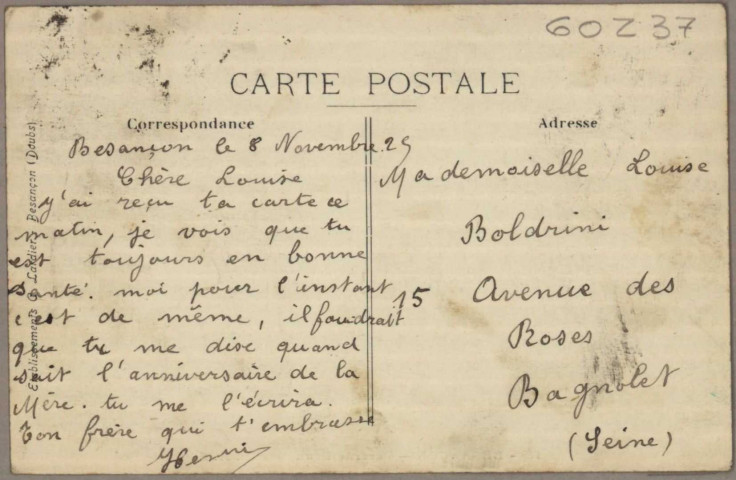 60Z37
CARTE POSTALE
Correspondance
Adresse
Besançon le 8 Novembre 25
Chère Louise
y'ai reçu ta carte ce
matin, je vois que tu
est toujours en bonne
santé. moi pour l'instant
c'est de même, il faudrait
que tu me dise quand
sait l'anniversaire de la
Mère. tu me l'écrira.
Ton frère qui t'embrasse
Henri
Mademoiselle Louise
Boldrini
15 Avenue des
Roses
Bagnolet
(Seine)
Etablissements C. Lardier, Besançon (Doubs)